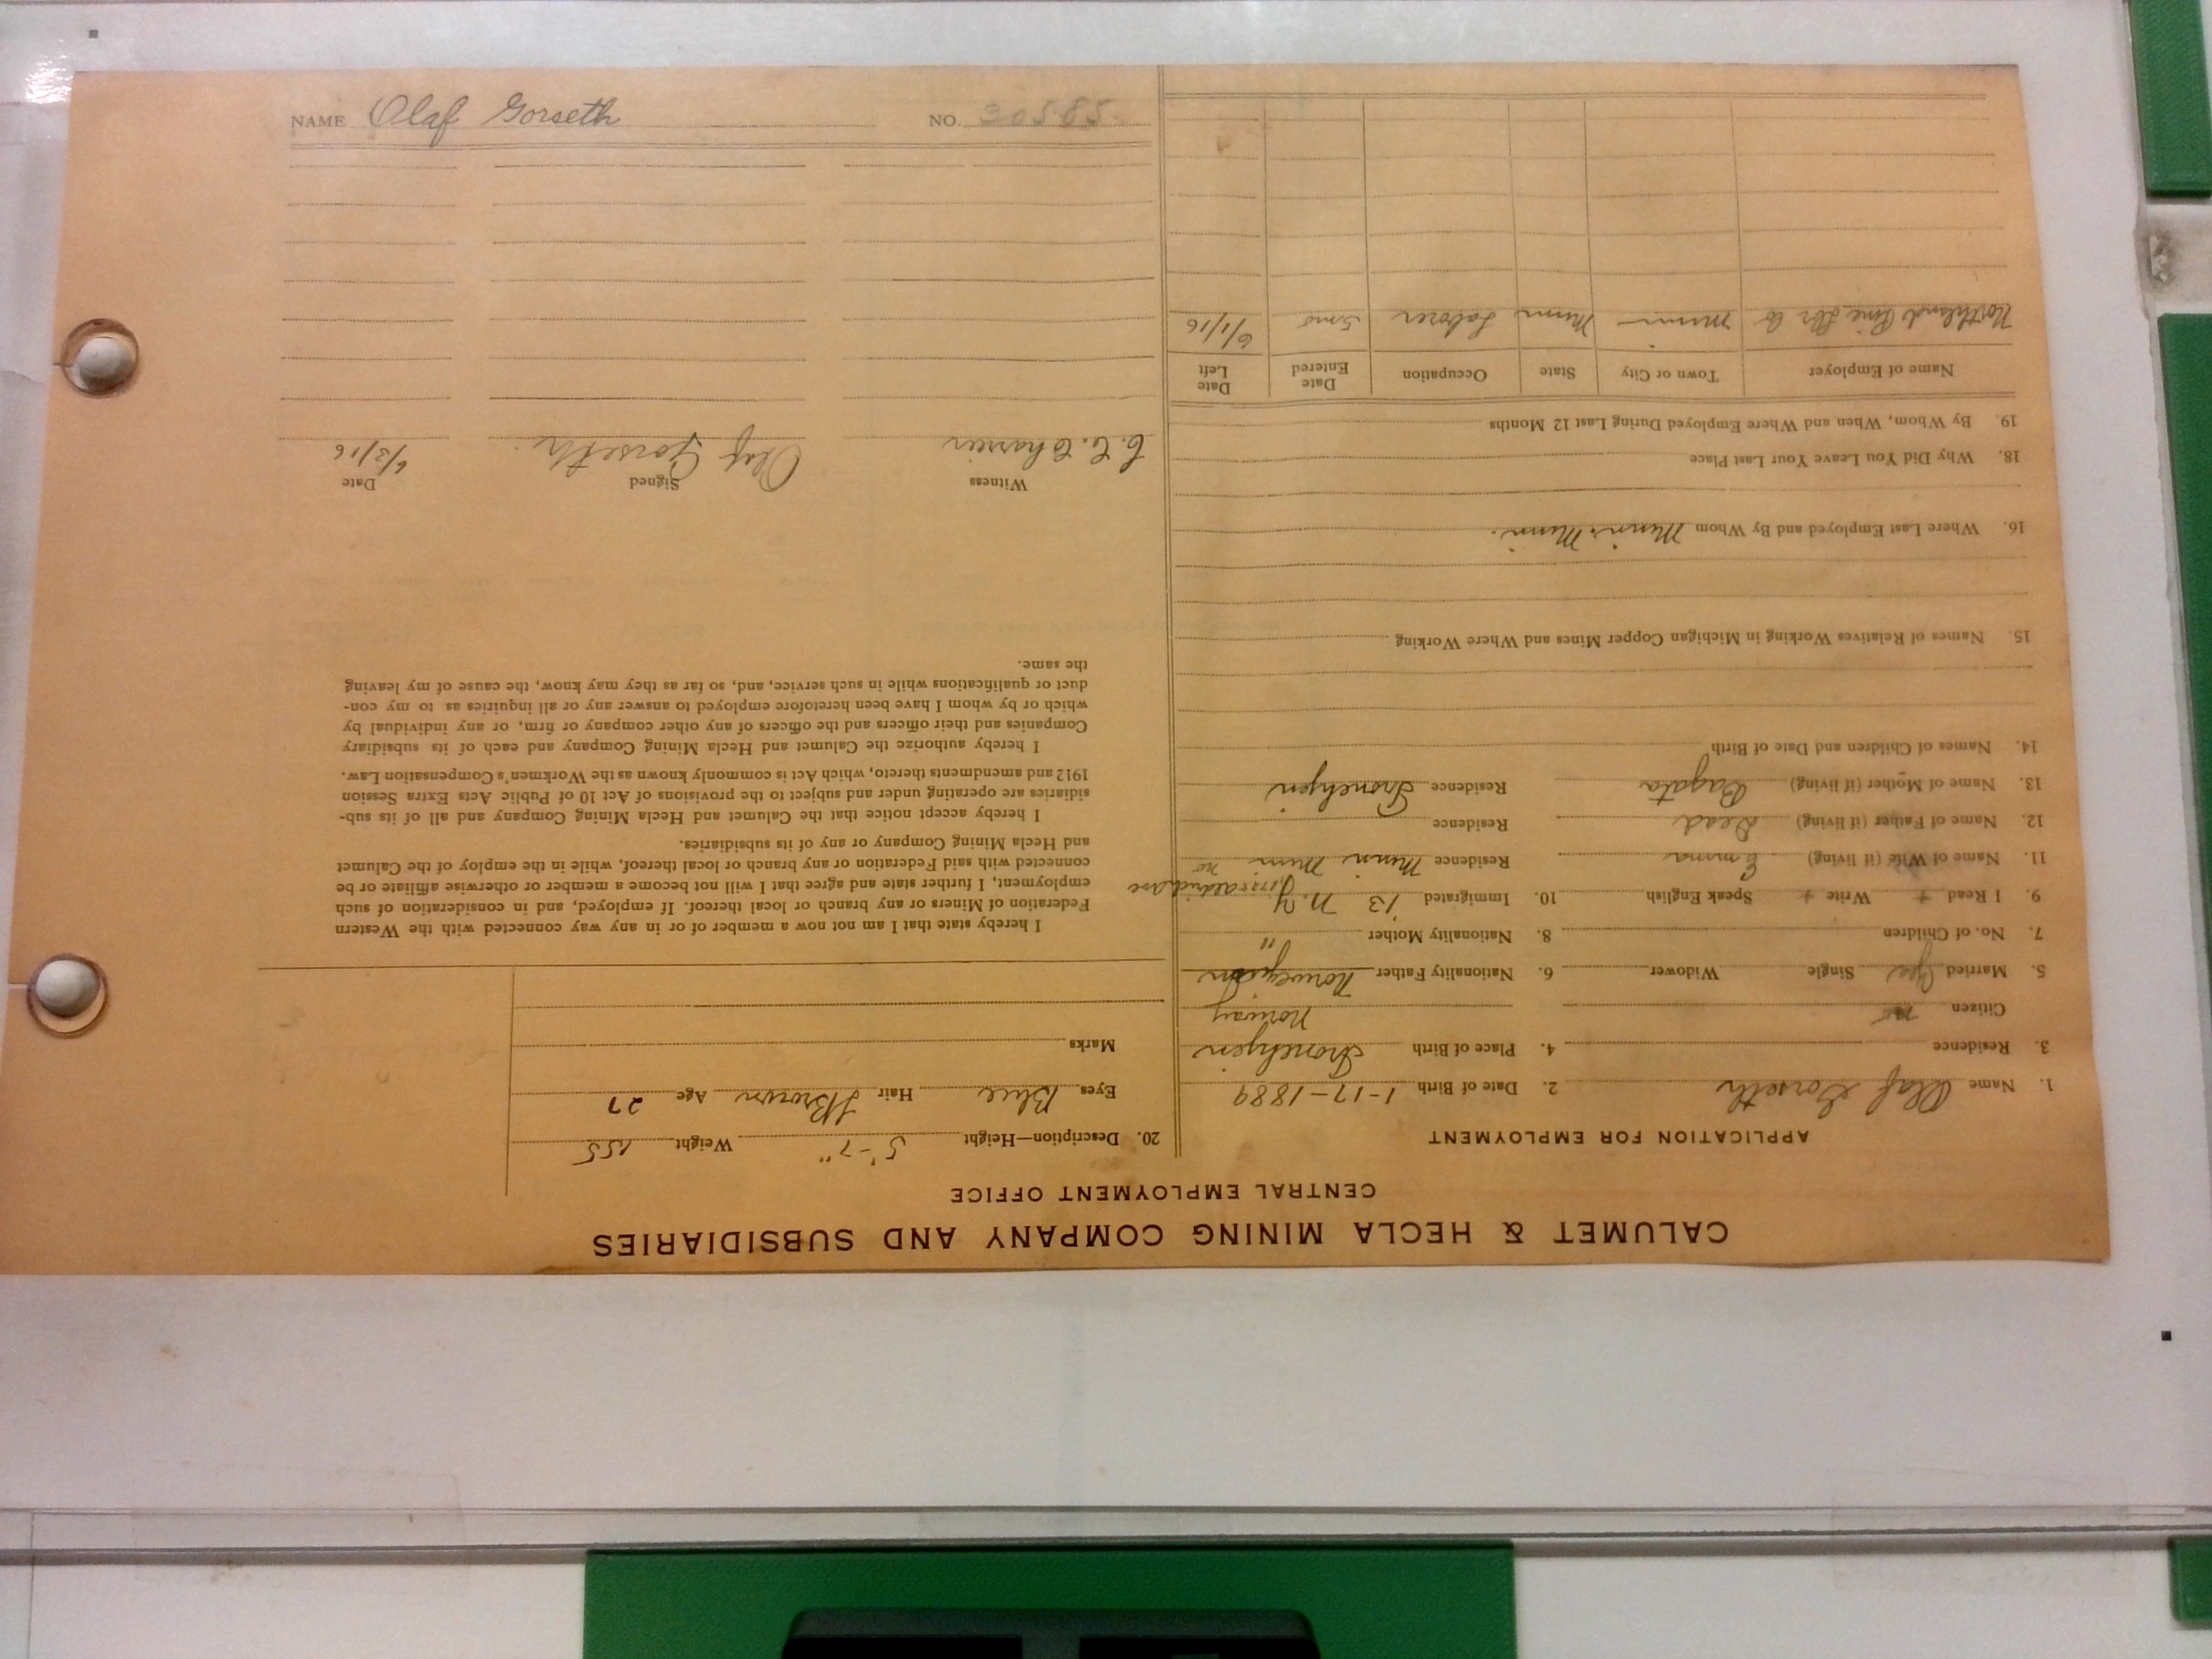 CALUMET & HECLA MINING COMPANY AND SUBSIDIARIES
CENTRAL EMPLOYMENT OFFICE
APPLICATION FOR EMPLOYMENT
1. Name Olaf Gorseth 2. Date of Birth 1-17-1889
3. Residence 4. Place of Birth Tronehjen
Citizen no Norway
5. Married yes Single Widower 6. Nationality Father Norwegian
7. No. of Children 8. Nationality Mother "
9. I Read + Write + Speak English 10. Immigrated '13 N.Y.
aldrich ave no
11. Name of Wife (if living) Emma Residence Minn. Minn
12. Name of Father (if living) Dead Residence
13. Name of Mother (if living) Bagata Residence Tronehjen
14. Names of Children and Date of Birth
15. Names of Relatives Working in Michigan Copper Mines and Where Working
16. Where Last Employed and By Whom Minn. Minn.
18. Why Did You Leave Your Last Place
19. By Whom, When and Where Employed During Last 12 Months
Name of Employer Town or City State Occupation Date Entered Date Left
Northland Pine Lbr Co Minn Minn Laborer 5 mo 6/1/16
20. Description—Height 5'-7" Weight 155
Eyes Blue Hair Brown Age 27
Marks
I hereby state that I am not now a member of or in any way connected with the Western
Federation of Miners or any branch or local thereof. If employed, and in consideration of such
employment, I further state and agree that I will not become a member or otherwise affiliate or be
connected with said Federation or any branch or local thereof, while in the employ of the Calumet
and Hecla Mining Company or any of its subsidiaries.
I hereby accept notice that the Calumet and Hecla Mining Company and all of its sub-
sidiaries are operating under and subject to the provisions of Act 10 of Public Acts Extra Session
1912 and amendments thereto, which Act is commonly known as the Workmen's Compensation Law.
I hereby authorize the Calumet and Hecla Mining Company and each of its subsidiary
Companies and their officers and the officers of any other company or firm, or any individual by
which or by whom I have been heretofore employed to answer any or all inquiries as to my con-
duct or qualifications while in such service, and, so far as they may know, the cause of my leaving
the same.
Witness Signed Date
Olaf Gorseth 6/3/16
NAME Olaf Gorseth NO. 30585